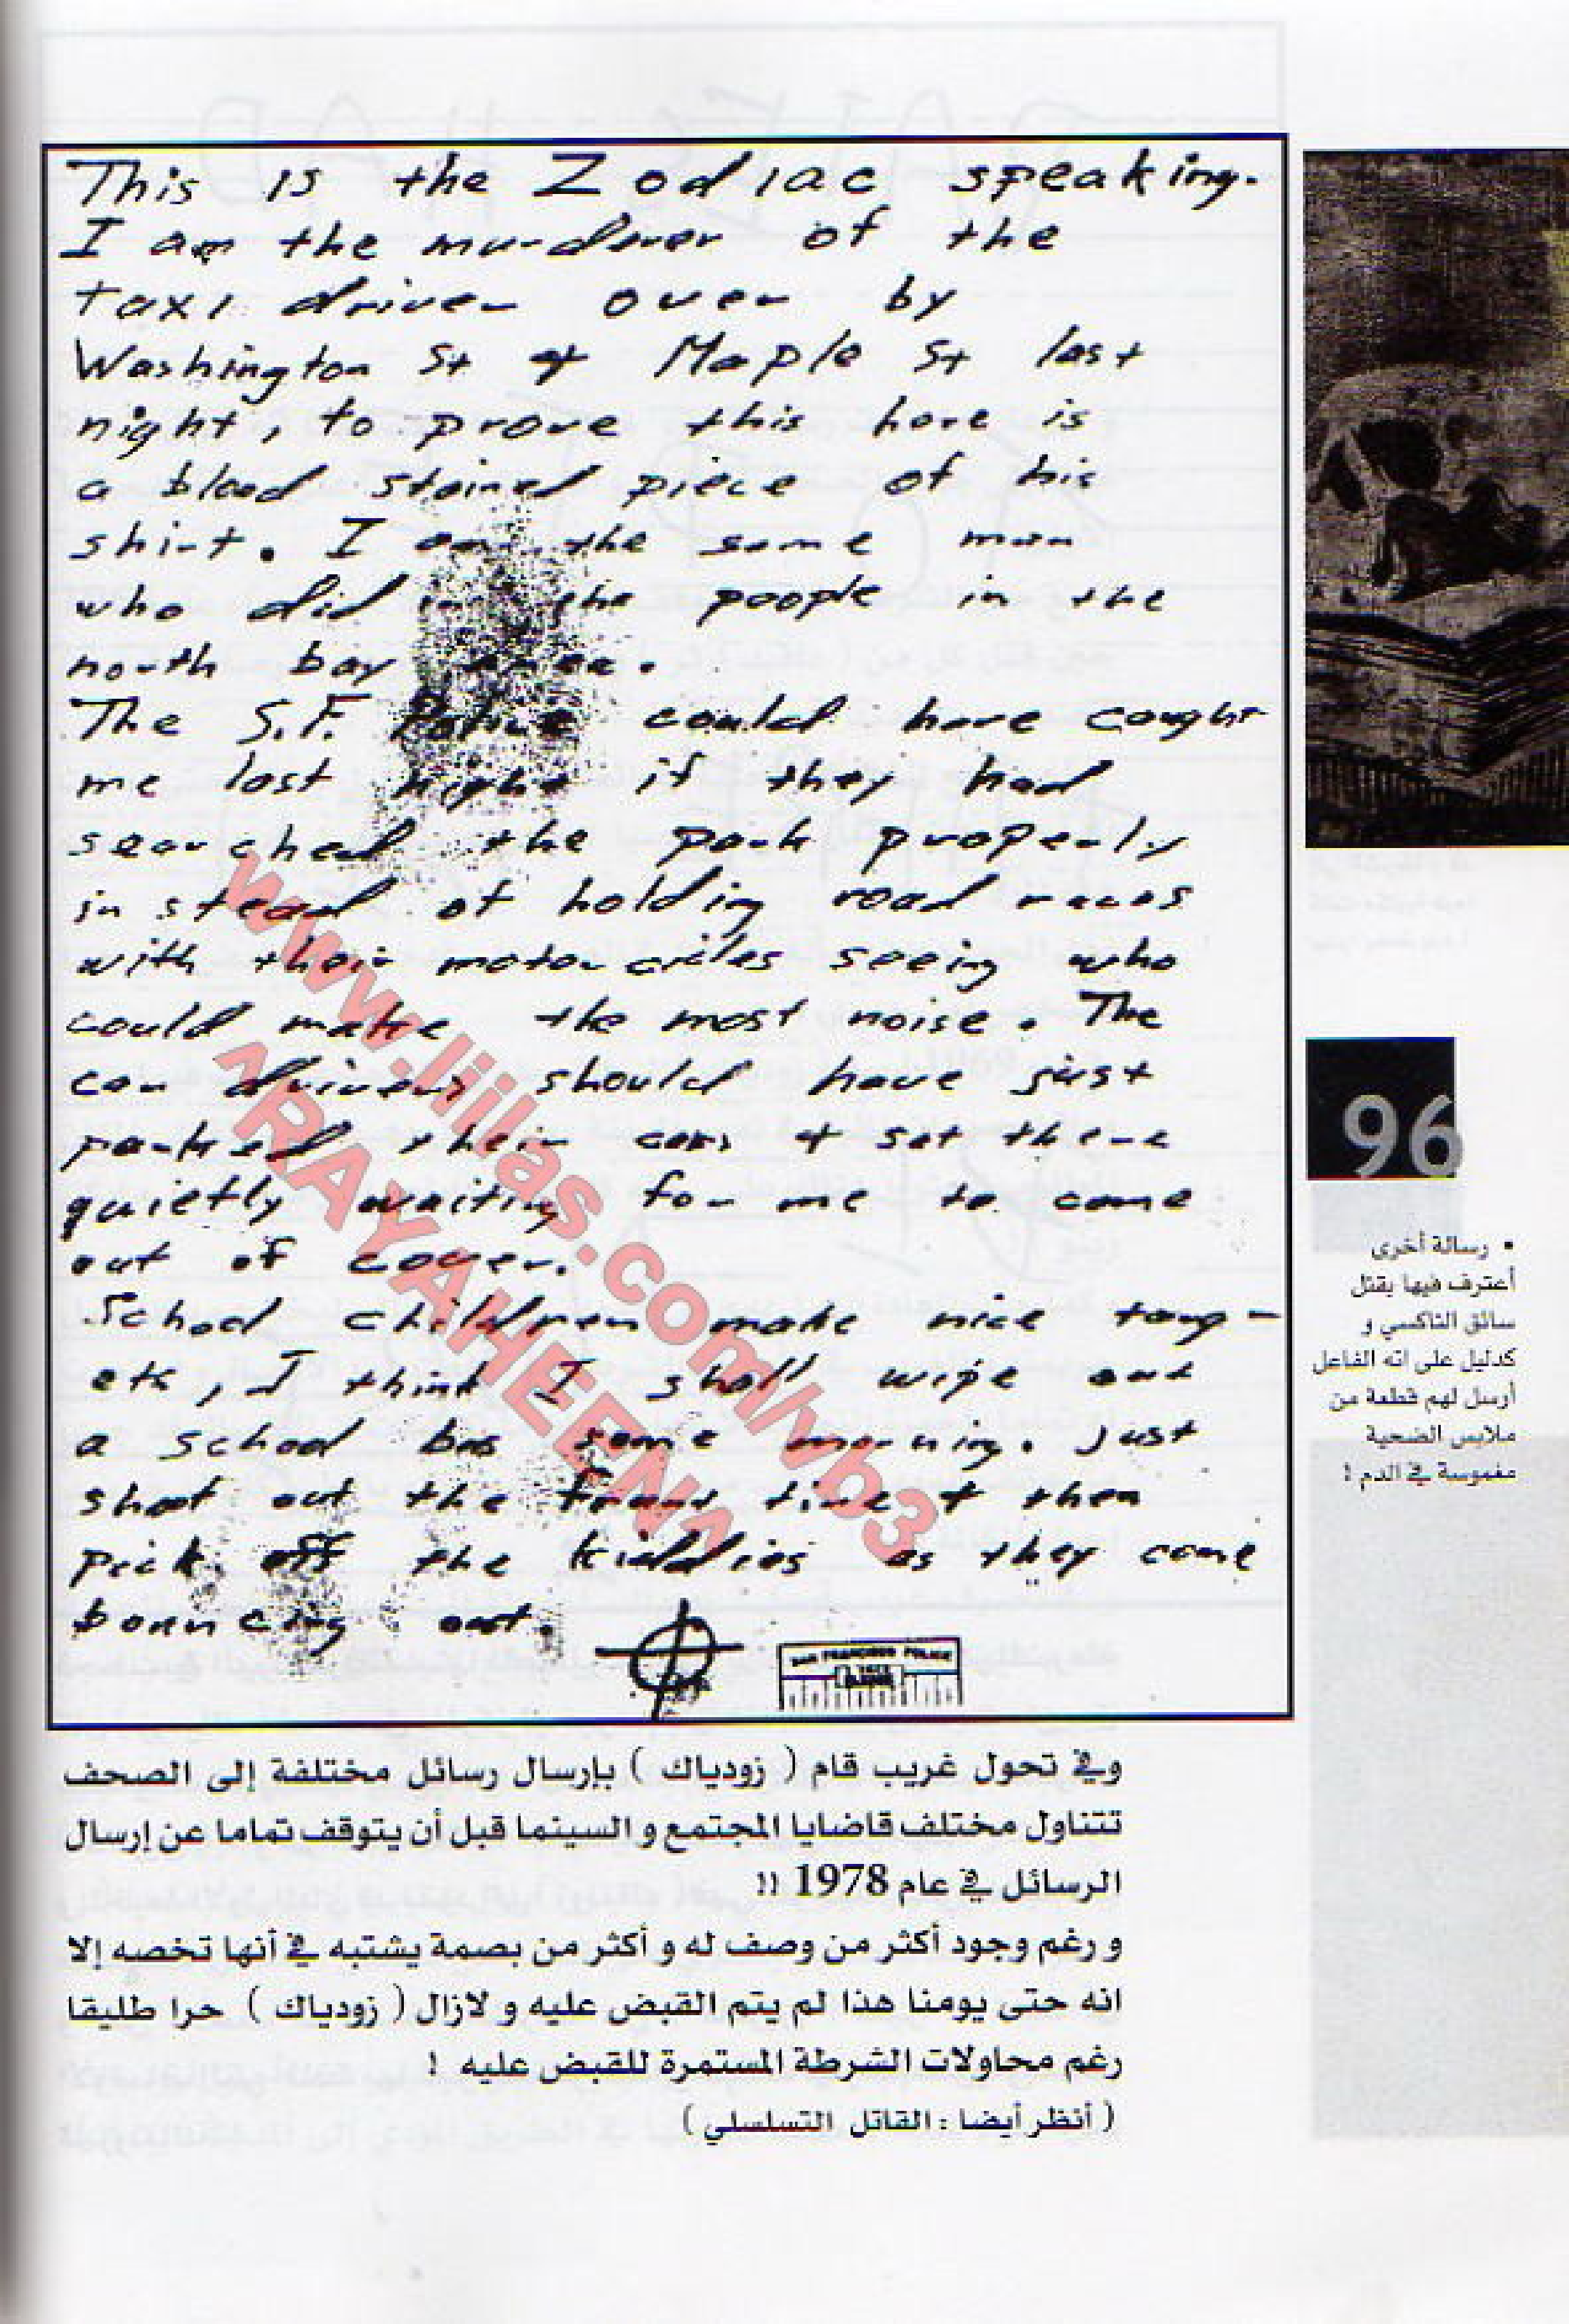 This is the Zodiac speaking.
I am the murderer of the
taxi driver over by
Washington St + Maple St last
night, to prove this here is
a blood stained piece of his
shirt. I am the same man
who did in the people in the
north bay area.
The S.F. Police could have caught
me last night if they had
searched the park properly
instead of holding road races
with their motorcicles seeing who
could make the most noise. The
car drivers should have just
parked their cars + sat there
quietly waiting for me to come
out of cover.
School children make nice targ-
ets, I think I shall wipe out
a school bus some morning. Just
shoot out the front tire + then
pick off the kiddies as they come
bouncing out.
SAN FRANCISCO POLICE
www.liilas.com/vb3
^RAYAHEENA^
96
• رسالة أخرى
أعترف فيها بقتل
سائق التاكسي و
كدليل على انه الفاعل
أرسل لهم قطعة من
ملابس الضحية
مغموسة في الدم !
وفي تحول غريب قام ( زودياك ) بإرسال رسائل مختلفة إلى الصحف
تتناول مختلف قاضايا المجتمع و السينما قبل أن يتوقف تماما عن إرسال
الرسائل في عام 1978 !!
و رغم وجود أكثر من وصف له و أكثر من بصمة يشتبه في أنها تخصه إلا
انه حتى يومنا هذا لم يتم القبض عليه و لازال ( زودياك ) حرا طليقا
رغم محاولات الشرطة المستمرة للقبض عليه !
( أنظر أيضا : القاتل التسلسلي )